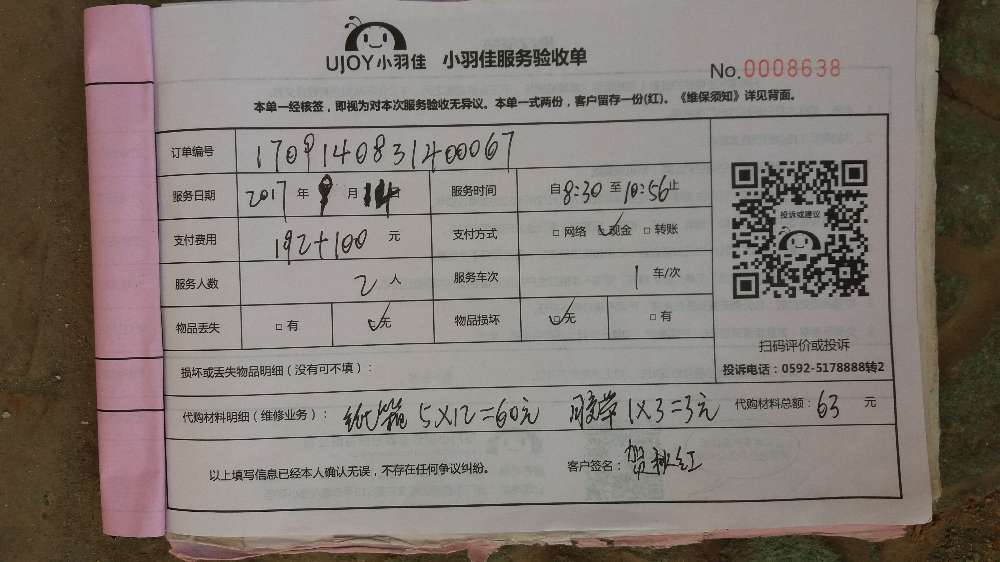 UJOY小羽佳 小羽佳服务验收单
No.0008638
本单一经核签，即视为对本次服务验收无异议。本单一式两份，客户留存一份(红)。《维保须知》详见背面。
订单编号 170914083140067
服务日期 2017 年 9 月 14 日 服务时间 自 8:30 至 10:56 止
支付费用 192+100 元 支付方式 □ 网络 ☑ 现金 □ 转账
服务人数 2 人 服务车次 1 车/次
物品丢失 □ 有 ☑ 无 物品损坏 ☑ 无 □ 有
投诉或建议
扫码评价或投诉
投诉电话：0592-5178888转2
损坏或丢失物品明细（没有可不填）：
代购材料明细（维修业务）： 纸箱 5×12=60元 1×3=3元 代购材料总额： 63 元
以上填写信息已经本人确认无误，不存在任何争议纠纷。 客户签名： 贺秋红